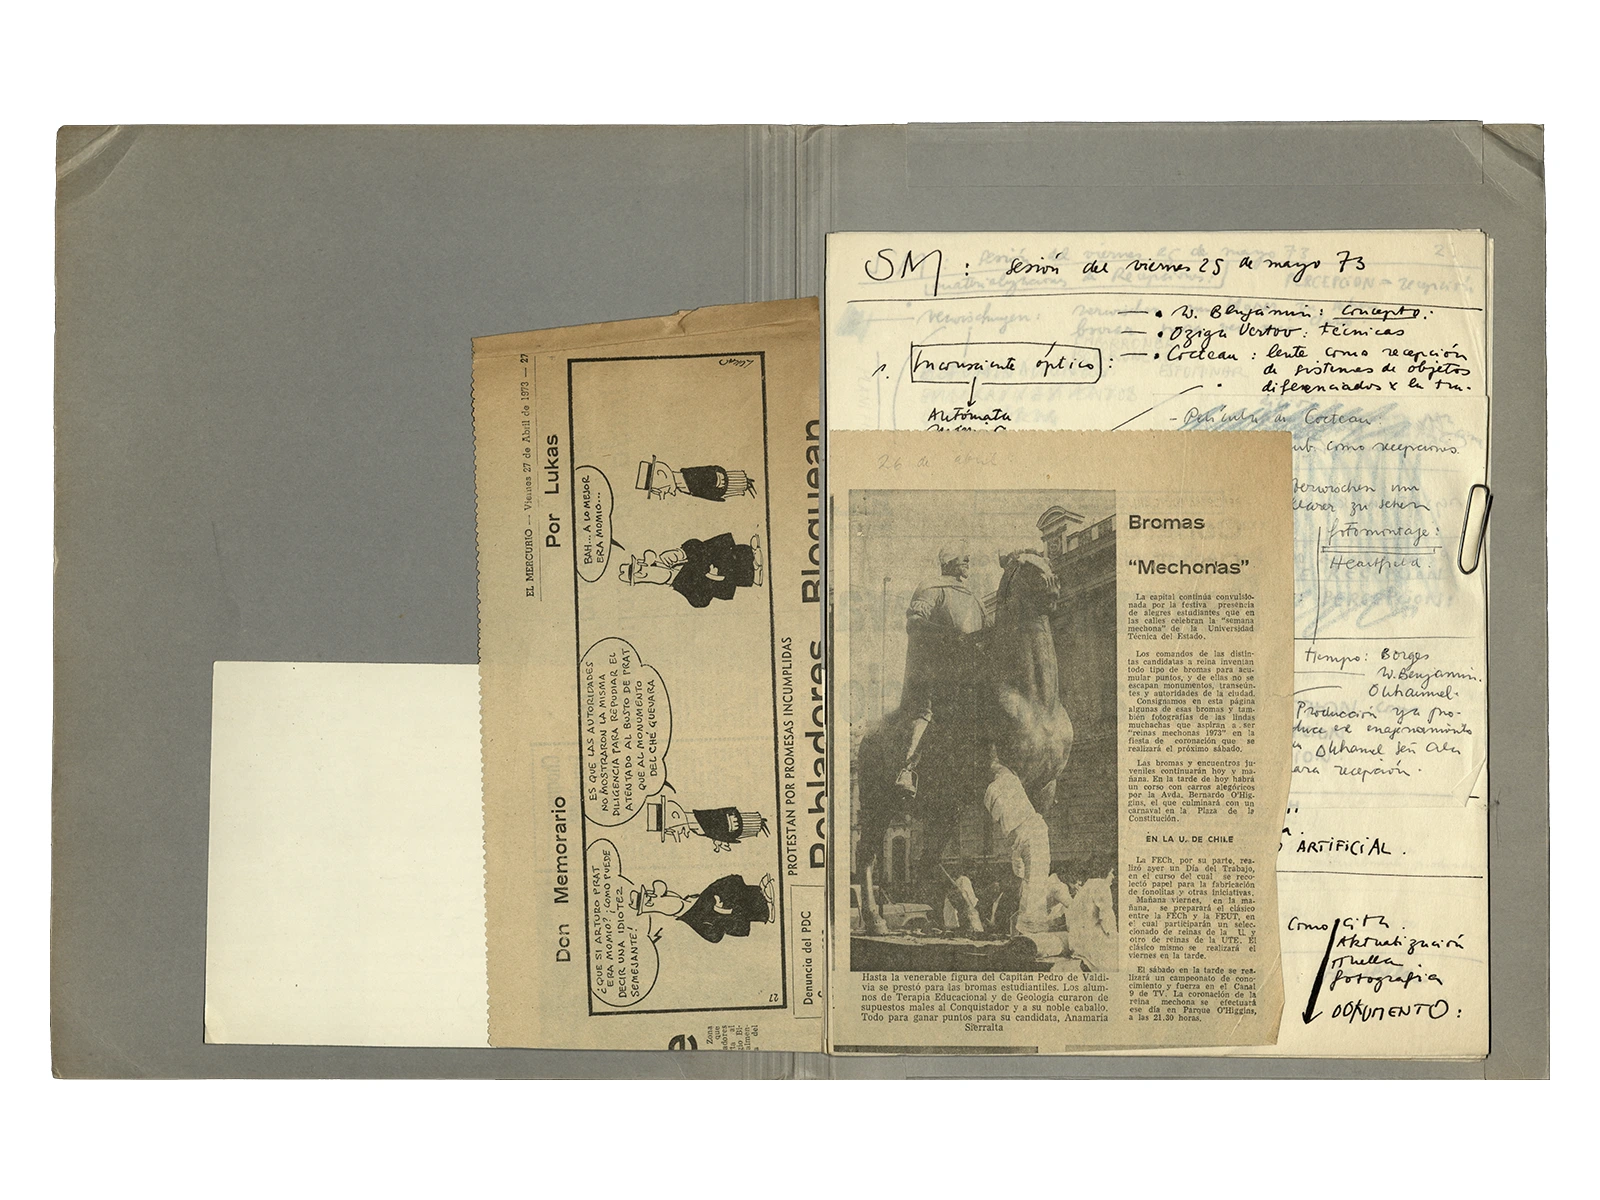 EL MERCURIO — Viernes 27 de Abril de 1973 — 27
Don Memorario
Por Lukas
¿QUE SI ARTURO PRAT
ERA MOMIO? ¡COMO PUEDE
DECIR UNA IDIOTEZ
SEMEJANTE!
ES QUE LAS AUTORIDADES
NO MOSTRARON LA MISMA
DILIGENCIA PARA REPUDIAR EL
ATENTADO AL BUSTO DE PRAT
QUE AL MONUMENTO
DEL CHÉ GUEVARA
BAH... A LO MEJOR
ERA MOMIO...
LUKAS
27
PROTESTAN POR PROMESAS INCUMPLIDAS
Pobladores Bloquean
Denuncia del PDC
Zona
que
SM : sesión del viernes 25 de mayo 73
2
1. Inconsciente óptico :
— • W. Benjamin : Concepto.
— • Dziga Vertov : técnicas
— • Cocteau : lente como recepción
de sistemas de objetos
diferenciados x la tra-
Autómata
- Película de Cocteau.
como recepciones.
Verwischen um
klarer zu sehen
fotomontaje :
Heartfield.
tiempo : Borges
W. Benjamin.
Duhamel.
Producción y/o pro-
duce el enajenamiento
Duhamel
para recepción.
ARTIFICIAL.
Como cita.
Aktualización
Huella
fotografía
DOKUMENTO :
26 de abril
Bromas
"Mechonas"
La capital continúa convulsio-
nada por la festiva presencia
de alegres estudiantes que en
las calles celebran la "semana
mechona" de la Universidad
Técnica del Estado.
Los comandos de las distin-
tas candidatas a reina inventan
todo tipo de bromas para acu-
mular puntos, y de ellas no se
escapan monumentos, transeún-
tes y autoridades de la ciudad.
Consignamos en esta página
algunas de esas bromas y tam-
bién fotografías de las lindas
muchachas que aspiran a ser
"reinas mechonas 1973" en la
fiesta de coronación que se
realizará el próximo sábado.
Las bromas y encuentros ju-
veniles continuarán hoy y ma-
ñana. En la tarde de hoy habrá
un corso con carros alegóricos
por la Avda. Bernardo O'Hig-
gins, el que culminará con un
carnaval en la Plaza de la
Constitución.
EN LA U. DE CHILE
La FECh, por su parte, rea-
lizó ayer un Día del Trabajo,
en el curso del cual se reco-
lectó papel para la fabricación
de fonolitas y otras iniciativas.
Mañana viernes, en la ma-
ñana, se preparará el clásico
entre la FECh y la FEUT, en
el cual participarán un selec-
cionado de reinas de la U. y
otro de reinas de la UTE. El
clásico mismo se realizará el
viernes en la tarde.
El sábado en la tarde se rea-
lizará un campeonato de cono-
cimiento y fuerza en el Canal
9 de TV. La coronación de la
reina mechona se efectuará
ese día en Parque O'Higgins,
a las 21.30 horas.
Hasta la venerable figura del Capitán Pedro de Valdi-
via se prestó para las bromas estudiantiles. Los alum-
nos de Terapia Educacional y de Geología curaron de
supuestos males al Conquistador y a su noble caballo.
Todo para ganar puntos para su candidata, Anamaría
Sierralta